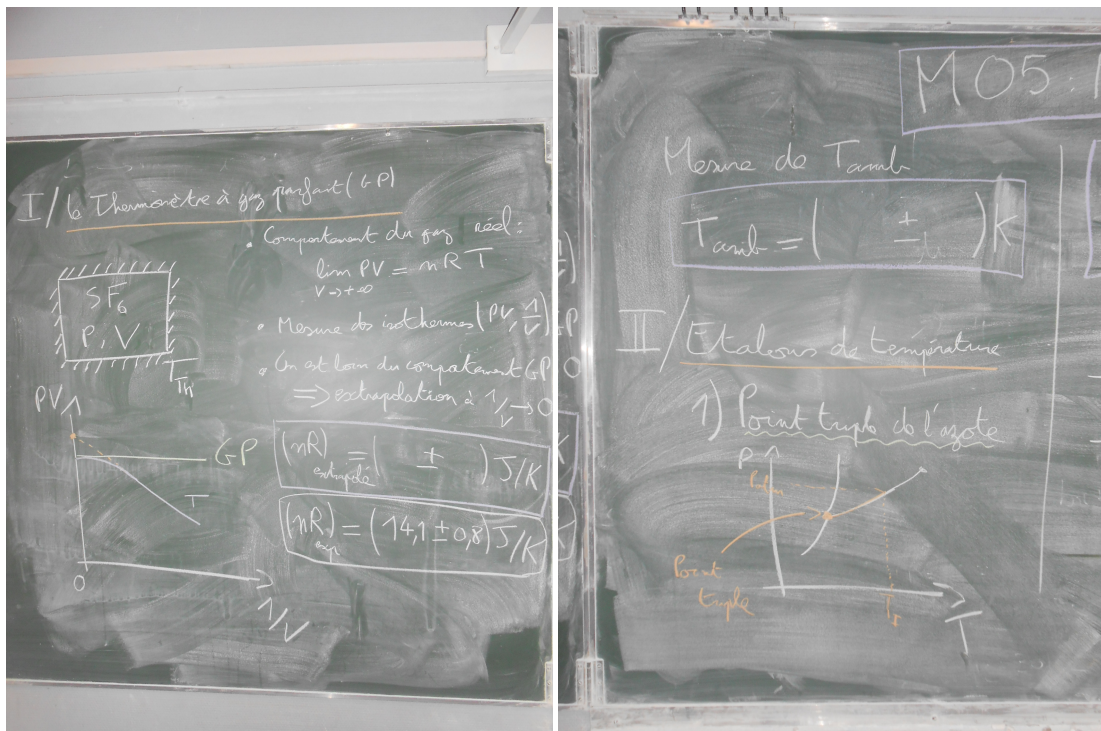 I/ Le Thermomètre à gaz parfait (GP)
• Comportement du gaz réel :
lim PV = nRT
V→+∞
SF6
P, V
TTh
• Mesure des isothermes (PV, 1/V)
• On est loin du comportement GP
⇒ extrapolation à 1/V→0
PV
GP
T
0
1/V
(nR)extrapolé = ( ± ) J/K
(nR)exp = (14,1 ± 0,8) J/K
M05 :
Mesure de Tamb
Tamb = ( ± ) K
II/ Etalons de température
1) Point triple de l'azote
P
Point
triple
T